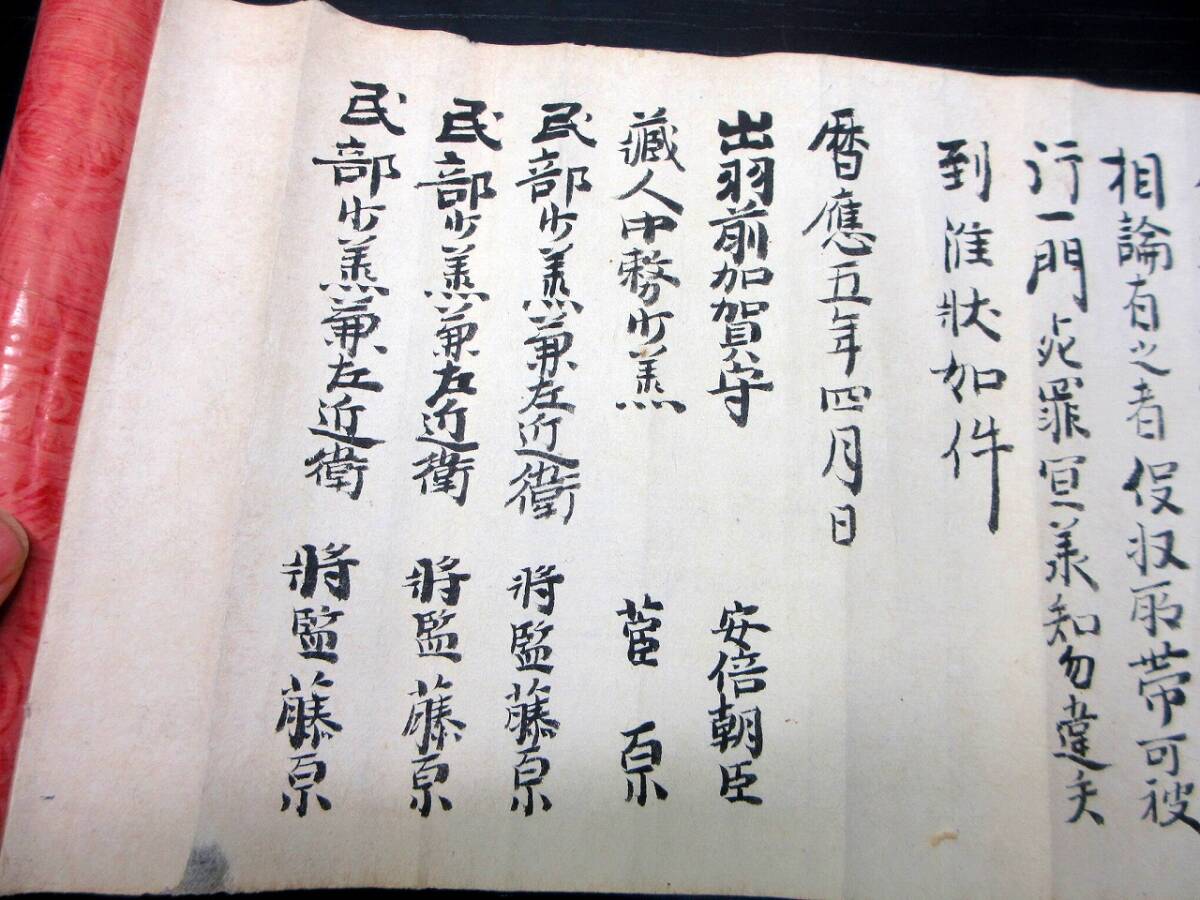 相論有之者仮収所帯可被
行一門死罪宜羕知勿違失
到准状如件
暦應五年四月日
出羽前加賀守 安倍朝臣
藏人中務少羕 菅原
民部少羕兼左近衛 將監藤原
民部少羕兼左近衛 將監藤原
民部少羕兼左近衛 將監藤原